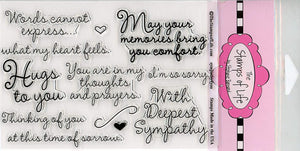 Words cannot
express...
what my heart feels.
May your
memories bring
you comfort.
Hugs
to you
You are in my
thoughts
and prayers.
I'm so sorry
With
Deepest
Sympathy
Thinking of you
at this time of sorrow.
The
Stamps of Life
Stamps Made in the USA